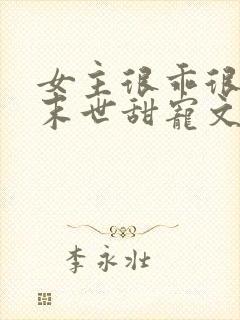 女主很乖很
末世甜寵文
李永壯